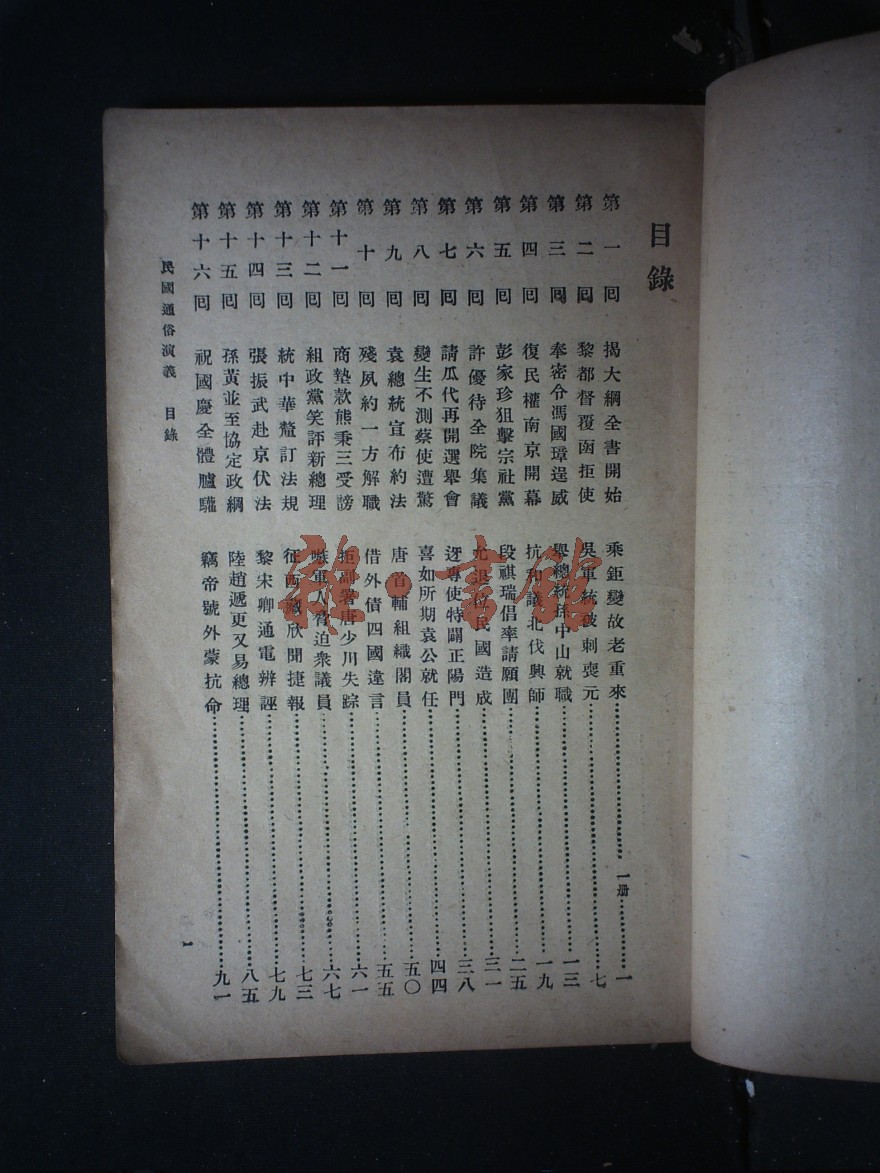 目錄
第一回 揭大綱全書開始 乘鉅變故老重來 一册 一
第二回 黎都督覆函拒使 吳軍統被刺喪元 七
第三回 奉密令馮國璋逞威 舉總統孫中山就職 一三
第四回 復民權南京開幕 抗和議北伐興師 一九
第五回 彭家珍狙擊宗社黨 段祺瑞倡率請願團 二五
第六回 許優待全院集議 允退位民國造成 三一
第七回 請瓜代再開選舉會 迓專使特闢正陽門 三八
第八回 變生不測蔡使遭驚 喜如所期袁公就任 四四
第九回 袁總統宣布約法 唐首輔組織閣員 五〇
第十回 殘夙約一方解職 借外債四國違言 五五
第十一回 商墊款熊秉三受謗 拒副署唐少川失踪 六一
第十二回 組政黨笑評新總理 嗾軍人脅迫衆議員 六七
第十三回 統中華釐訂法規 征西藏欣聞捷報 七三
第十四回 張振武赴京伏法 黎宋卿通電辨誣 七九
第十五回 孫黃並至協定政綱 陸趙遞更又易總理 八五
第十六回 祝國慶全體臚驩 竊帝號外蒙抗命 九一
民國通俗演義 目錄 1
雜·書館